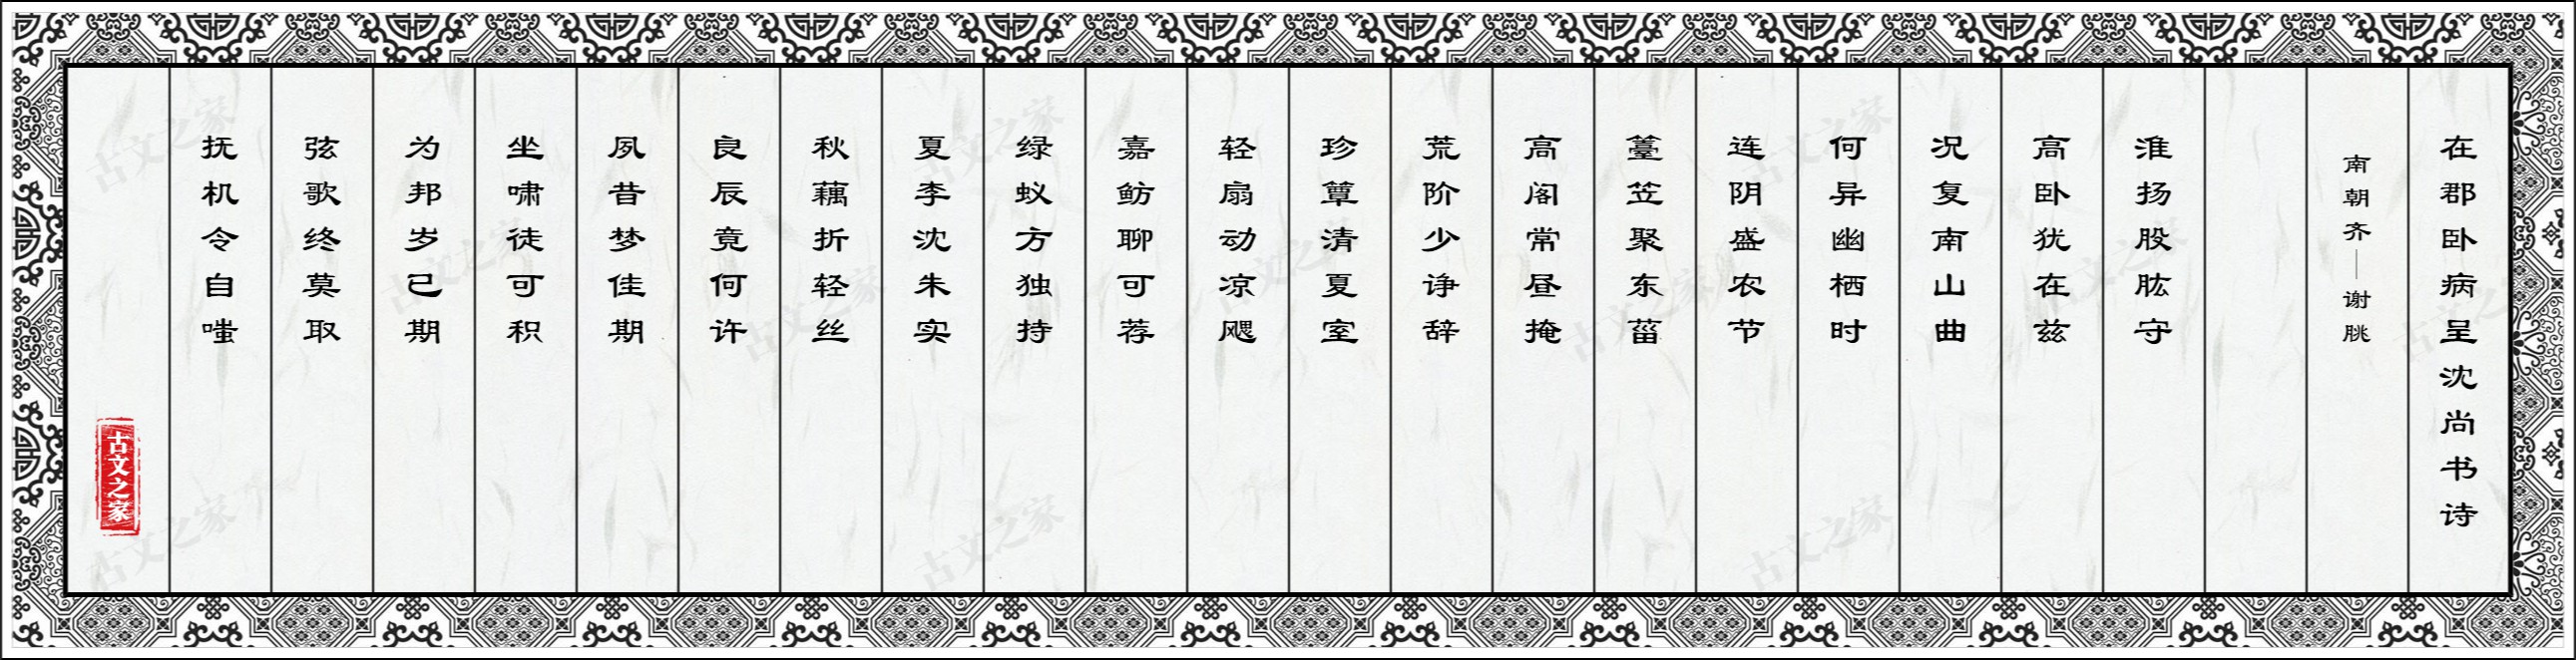 在郡卧病呈沈尚书诗
南朝齐—谢朓
淮扬股肱守
高卧犹在兹
况复南山曲
何异幽栖时
连阴盛农节
薹笠聚东菑
高阁常昼掩
荒阶少诤辞
珍簟清夏室
轻扇动凉飔
嘉鲂聊可荐
绿蚁方独持
夏李沈朱实
秋藕折轻丝
良辰竟何许
夙昔梦佳期
坐啸徒可积
为邦岁已期
弦歌终莫取
抚机令自嗤
古文之家